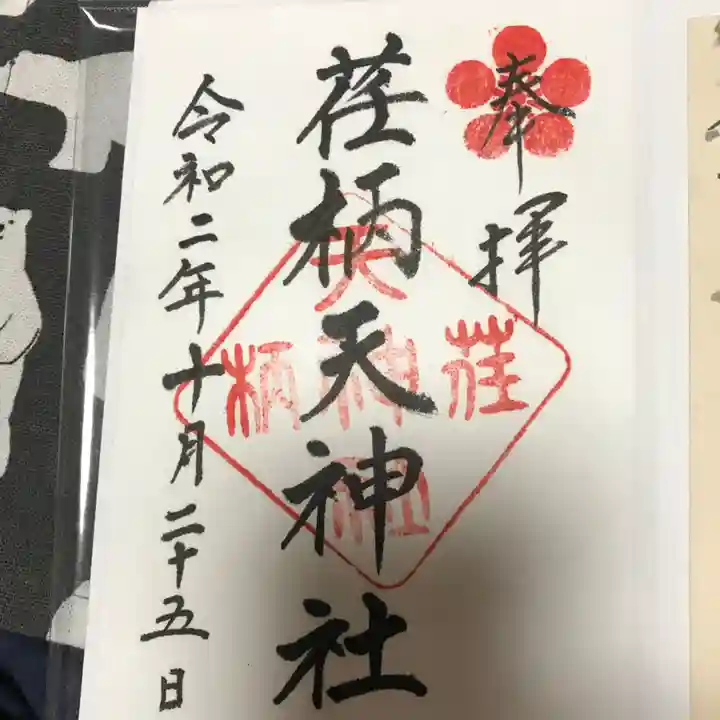 奉拝
荏柄天神社
令和二年十月二十五日
荏
柄
天
神
社